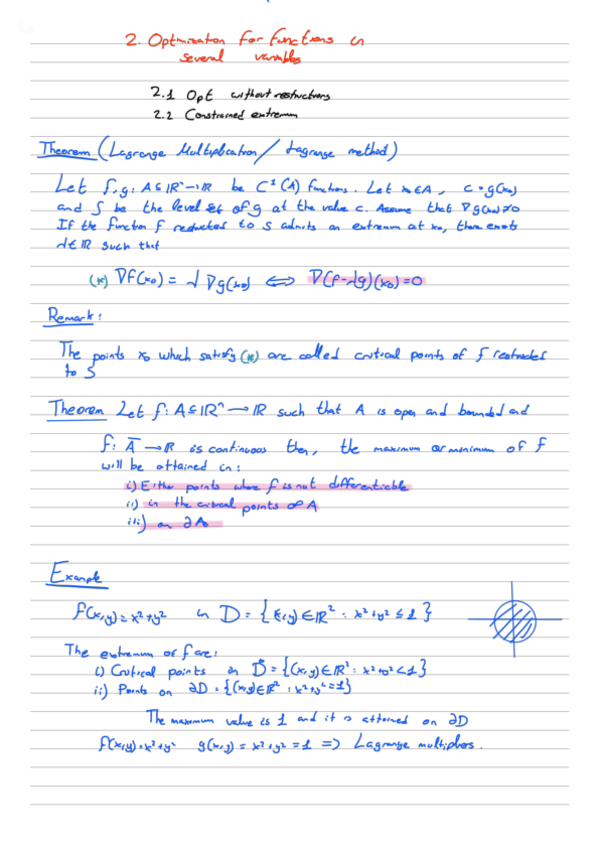 2. Optimization for functions in
several variables
2.1 Opt without restrictions
2.2 Constrained extremum
Theorem (Lagrange Multiplication / Lagrange method)
Let f, g: A ⊆ ℝⁿ → ℝ be C¹(A) functions. Let x₀ ∈ A, c = g(x₀)
and S be the level set of g at the value c. Assume that ∇g(x₀) ≠ 0
If the function f reducted to S admits an extremum at x₀, then exists
λ ∈ ℝ such that
(*) ∇f(x₀) = λ ∇g(x₀) ⟺ ∇(f-λg)(x₀) = 0
Remark:
The points x₀ which satisfy (*) are called critical points of f restricted
to S
Theorem Let f: A ⊆ ℝⁿ → ℝ such that A is open and bounded and
f: Ā → ℝ is continuous then, the maximum or minimum of f
will be attained in:
i) Either points where f is not differentiable
ii) in the critical points of A
iii) on ∂A
Example
f(x,y) = x² + y² in D = {(x,y) ∈ ℝ² : x² + y² ≤ 1}
The extremum of f are:
i) Critical points in D̊ = {(x,y) ∈ ℝ² : x² + y² < 1}
ii) Points on ∂D = {(x,y) ∈ ℝ² : x² + y² = 1}
The maximum value is 1 and it is attained on ∂D
f(x,y) = x² + y² g(x,y) = x² + y² = 1 => Lagrange multipliers.